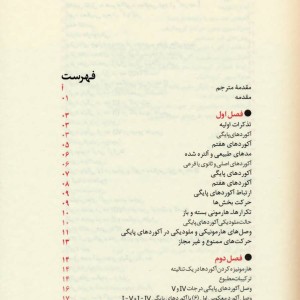 فهرست
مقدمهٔ مترجم أ
مقدمه ۰۱
فصل اول ۰۳
تذکرات اولیه ۰۳
آکوردهای پایگی ۰۳
آکوردهای هفتم ۰۵
مدهای طبیعی و آلتره شده ۰۶
آکوردهای اصلی و ثانوی یا فرعی ۰۶
آکوردهای پایگی ۰۷
آکوردهای هفتم ۰۸
ارتباط آکوردهای پایگی ۰۹
حرکت بخش‌ها ۰۹
تکرارها، هارمونی بسته و باز ۱۰
حالت ملودیکی آکوردهای پایگی ۱۰
وصل‌های هارمونیکی و ملودیکی در آکوردهای پایگی ۱۱
حرکت‌های ممنوع و غیر مجاز ۱۳
فصل دوم ۱۴
هارمونیزه کردن آکوردها در یک تنالیته ۱۴
ترکیبات مطبوع ۱۴
وصل آکوردهای پایگی درجات IV و V ۱۶
۱۷